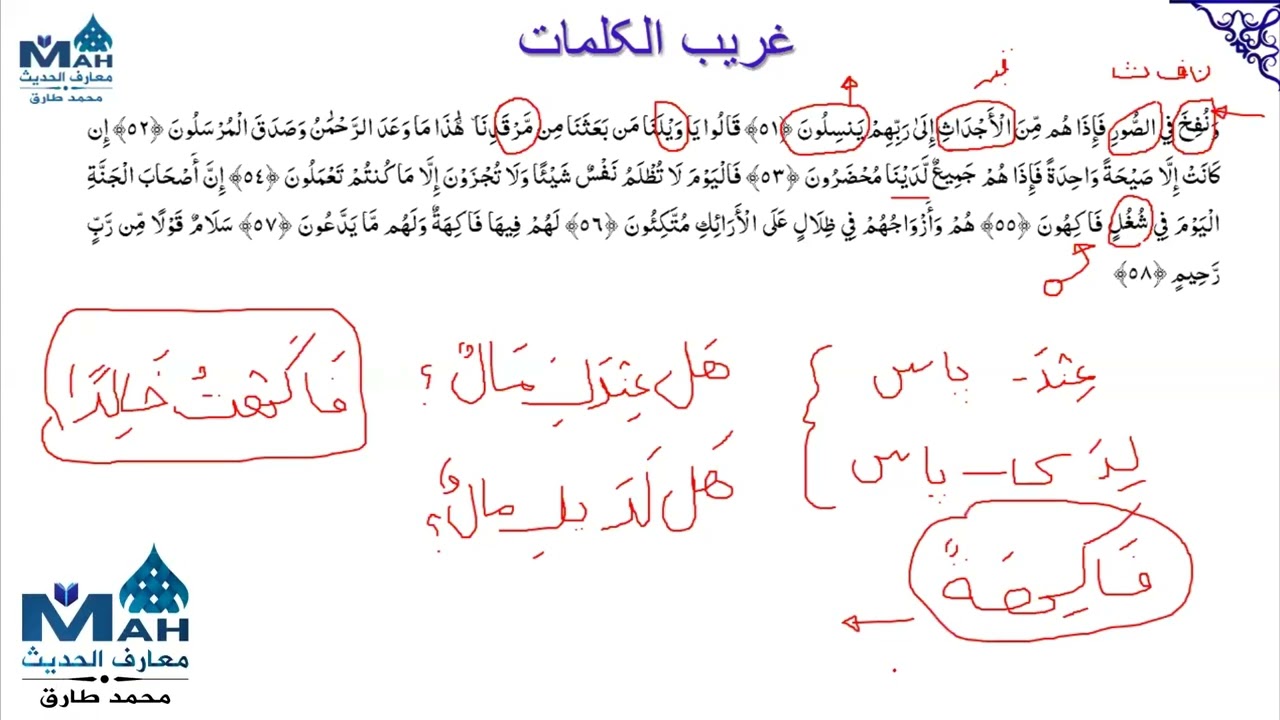 غريب الكلمات
MAH
معارف الحديث
محمد طارق
وَنُفِخَ فِي الصُّورِ فَإِذَا هُم مِّنَ الْأَجْدَاثِ إِلَىٰ رَبِّهِمْ يَنسِلُونَ ﴿٥١﴾ قَالُوا يَا وَيْلَنَا مَن بَعَثَنَا مِن مَّرْقَدِنَا ۜ هَٰذَا مَا وَعَدَ الرَّحْمَٰنُ وَصَدَقَ الْمُرْسَلُونَ ﴿٥٢﴾ إِن
كَانَتْ إِلَّا صَيْحَةً وَاحِدَةً فَإِذَا هُمْ جَمِيعٌ لَّدَيْنَا مُحْضَرُونَ ﴿٥٣﴾ فَالْيَوْمَ لَا تُظْلَمُ نَفْسٌ شَيْئًا وَلَا تُجْزَوْنَ إِلَّا مَا كُنتُمْ تَعْمَلُونَ ﴿٥٤﴾ إِنَّ أَصْحَابَ الْجَنَّةِ
الْيَوْمَ فِي شُغُلٍ فَاكِهُونَ ﴿٥٥﴾ هُمْ وَأَزْوَاجُهُمْ فِي ظِلَالٍ عَلَى الْأَرَائِكِ مُتَّكِئُونَ ﴿٥٦﴾ لَهُمْ فِيهَا فَاكِهَةٌ وَلَهُم مَّا يَدَّعُونَ ﴿٥٧﴾ سَلَامٌ قَوْلًا مِّن رَّبٍّ
رَّحِيمٍ ﴿٥٨﴾
عِنْدَ - پاس
هَل عِنْدَكَ مَالٌ ؟
هَل لَدَيكِ مالٌ ؟
فَاكِهَةٌ
MAH
معارف الحديث
محمد طارق